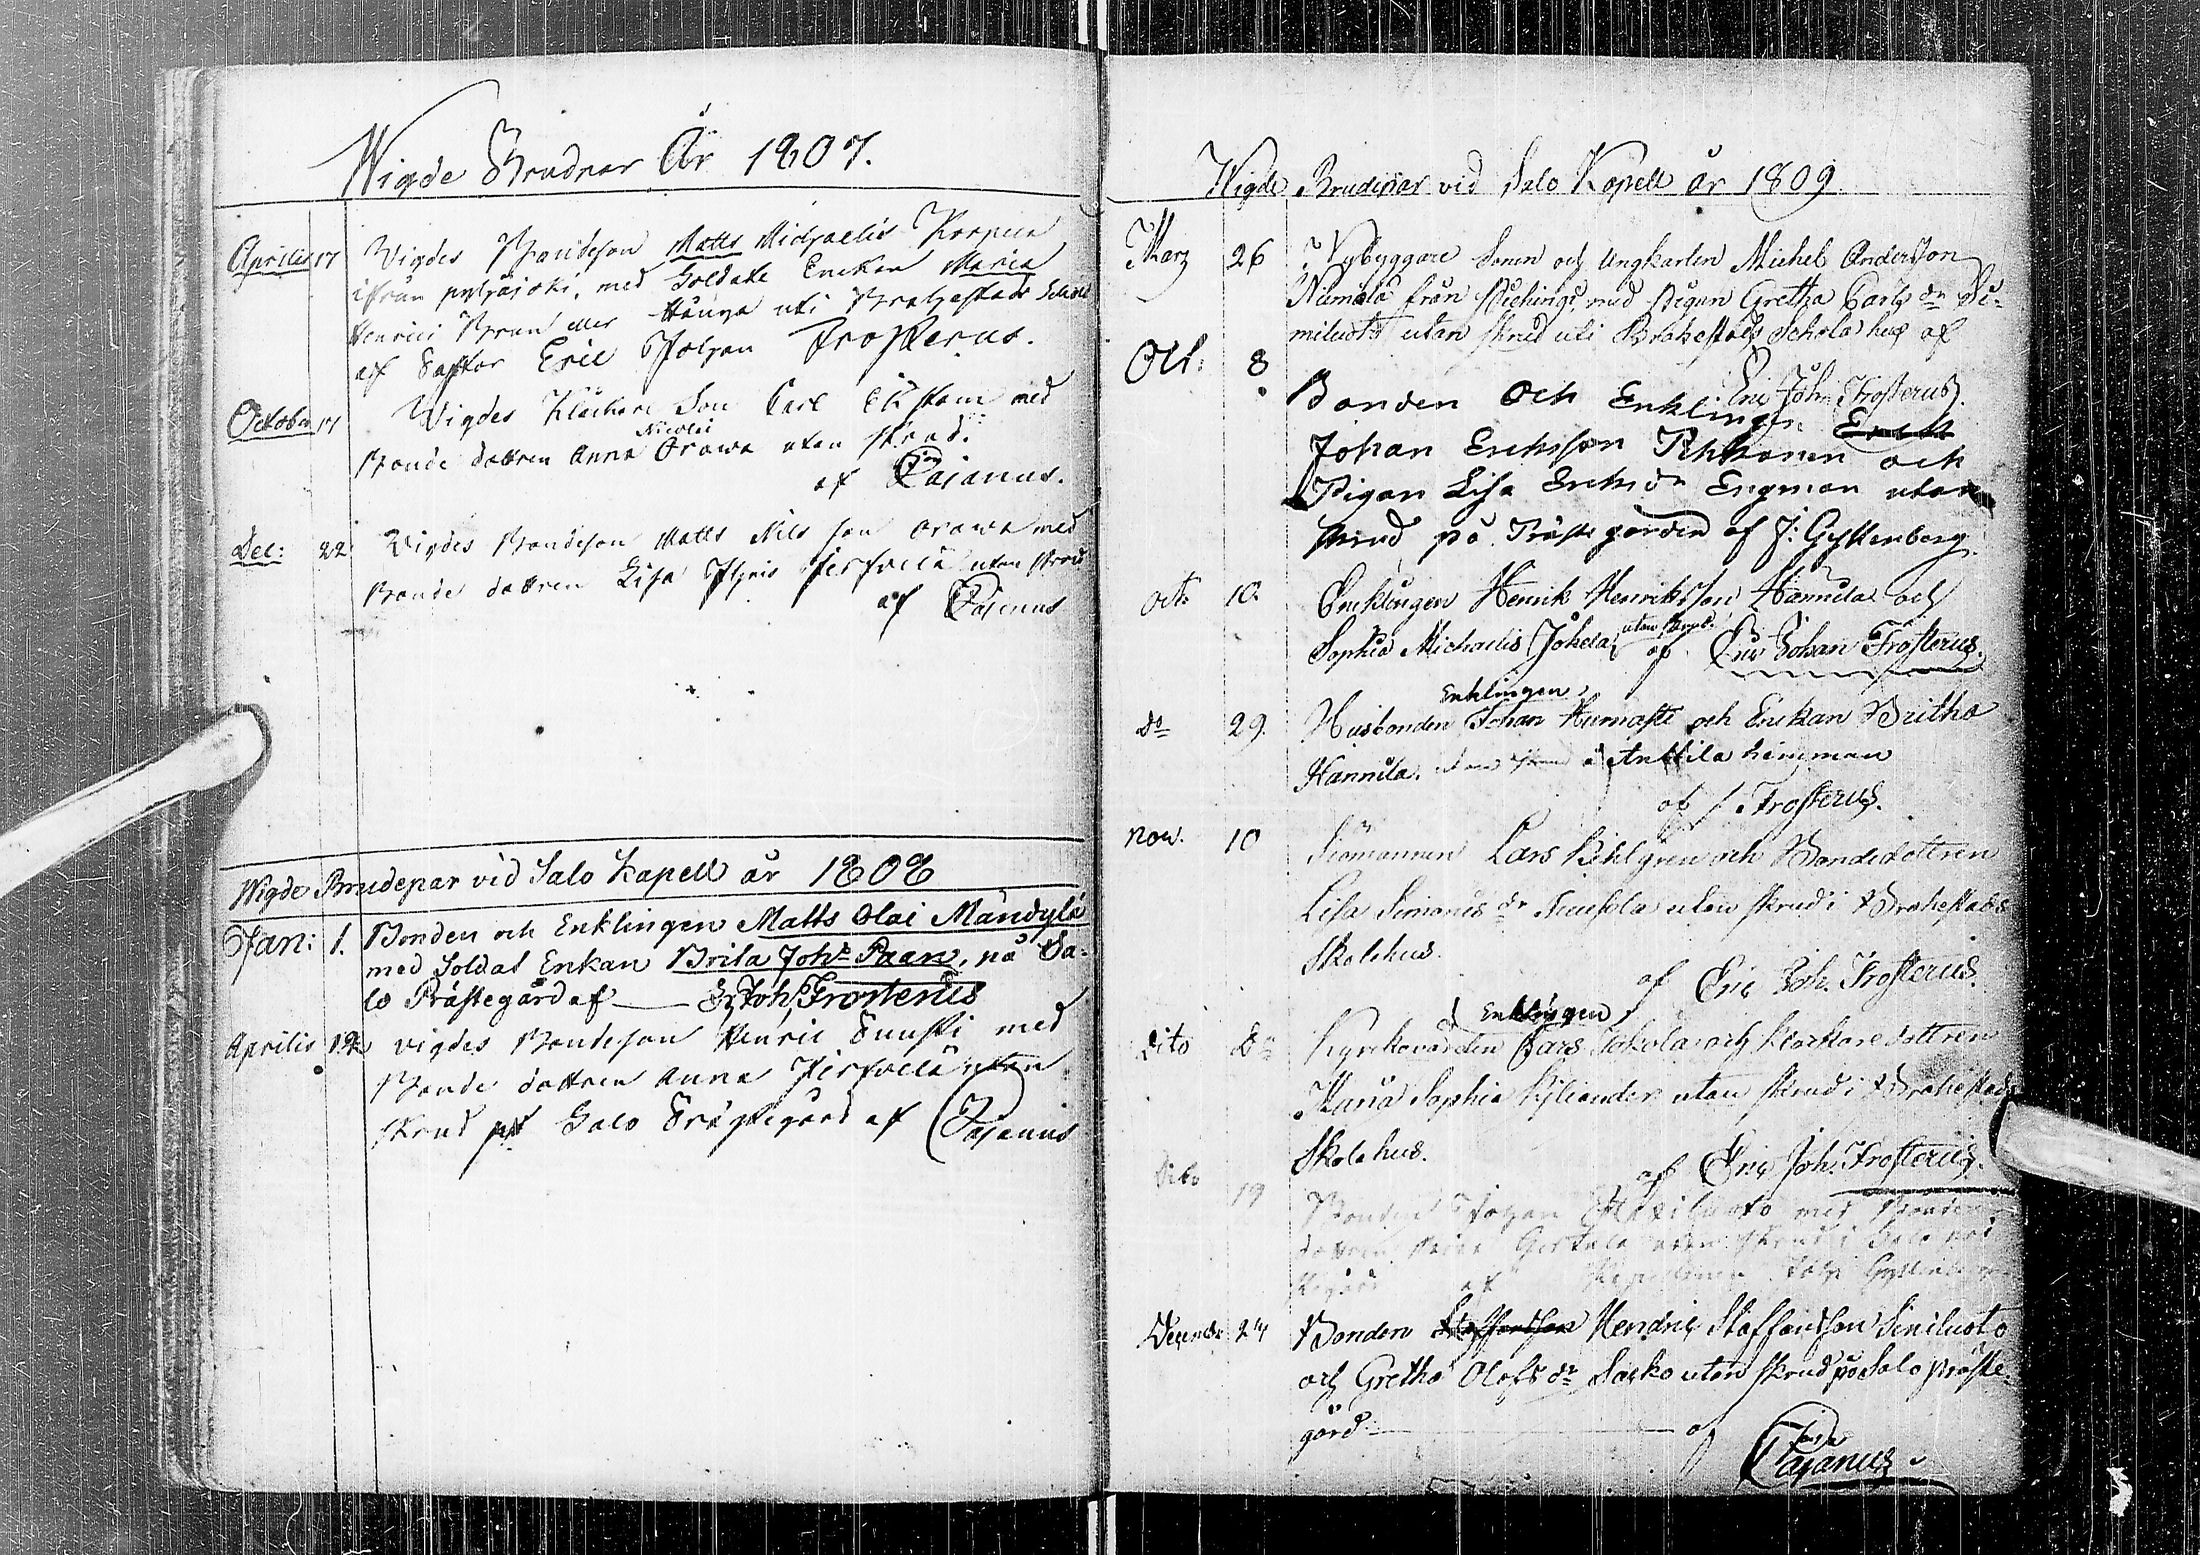 Wigde Brudpar År 1807.
Aprilis 17 Vigdes Bondeson Matts Michaelis Korpela
ifrån pyhäjoki, med Soldate Enckan Maria
Henrici Brun eller Hänga uti Brahestads Schole
af Pastor Eric Johan Frosterus.
October 17 Vigdes Klåckare Son Carl Ekstam med
Nicolai
Bonde dottren Anna Orawa utan skrud.
af Pajanus.
Dec: 22 Vigdes Bondeson Matts Nils son Orawa med
Bonde dottren Lisa Thomis utan skrud
af Pajanus
Wigde Brudepar vid Salo Kapell år 1808
Jan: 1. Bonden och Enklingen Matts Olai Mändylä
med Soldat Enkan Brita Johs Paan, på Sa-
lo Prästegård af Er Joh Frosterus
Aprilis 19 vigdes Bondeson Henric Suuski med
Bonde dottren Anna utan
skrud på Salo Prästegård af Pajanus
Wigde Brudepar vid Salo Kapell år 1809
Marz 26 Nybyggare Sonen och Ungkarlen Michel Andersson
Niemälä från med Pigan Gretha Carls dr Si-
miluoto utan skrud uti Brahestads Schola hus af
Eric Joh. Frosterus.
Oct: 8 Bonden Och Enklingen
Johan Ericksson Pehkonen och
Pigan Lisa Ericks dr Engman utan
skrud på Prästegården af J: Gyllenberg.
Oct. 10. Encklingen Henrik Henriksson Hannila och
utan skrud
Sophia Michaelis Jokela af Eric Johan Frosterus.
Enklingen
Do 29. Husbonden Johan Hurnasti och Enckan Britha
Hannila, utan skrud i Anttila hemman
af Frosterus.
Nov. 10 Siömannen Lars Kihlgren och Bondedottren
Lisa Simonis dr utan skrud i Brahestads
Skolehus.
af Eric Joh. Frosterus.
Enklingen
Dito Do Kyrckovärden Lars Jokela och Klockare dottren
Maria Sophia Kiliander utan skrud i Brahestads
Skolehus.
af Eric Joh. Frosterus.
Dito 19 Bonden Johan med Bonde
dottren utan skrud i Salo prä
stegård af Joh: Gyllenberg
Decembr 24 Bonden Hendric Staffansson Siniluoto
och Gretha Olofs dr Sarko utan skrud på Salo präste-
gård af
Pajanus